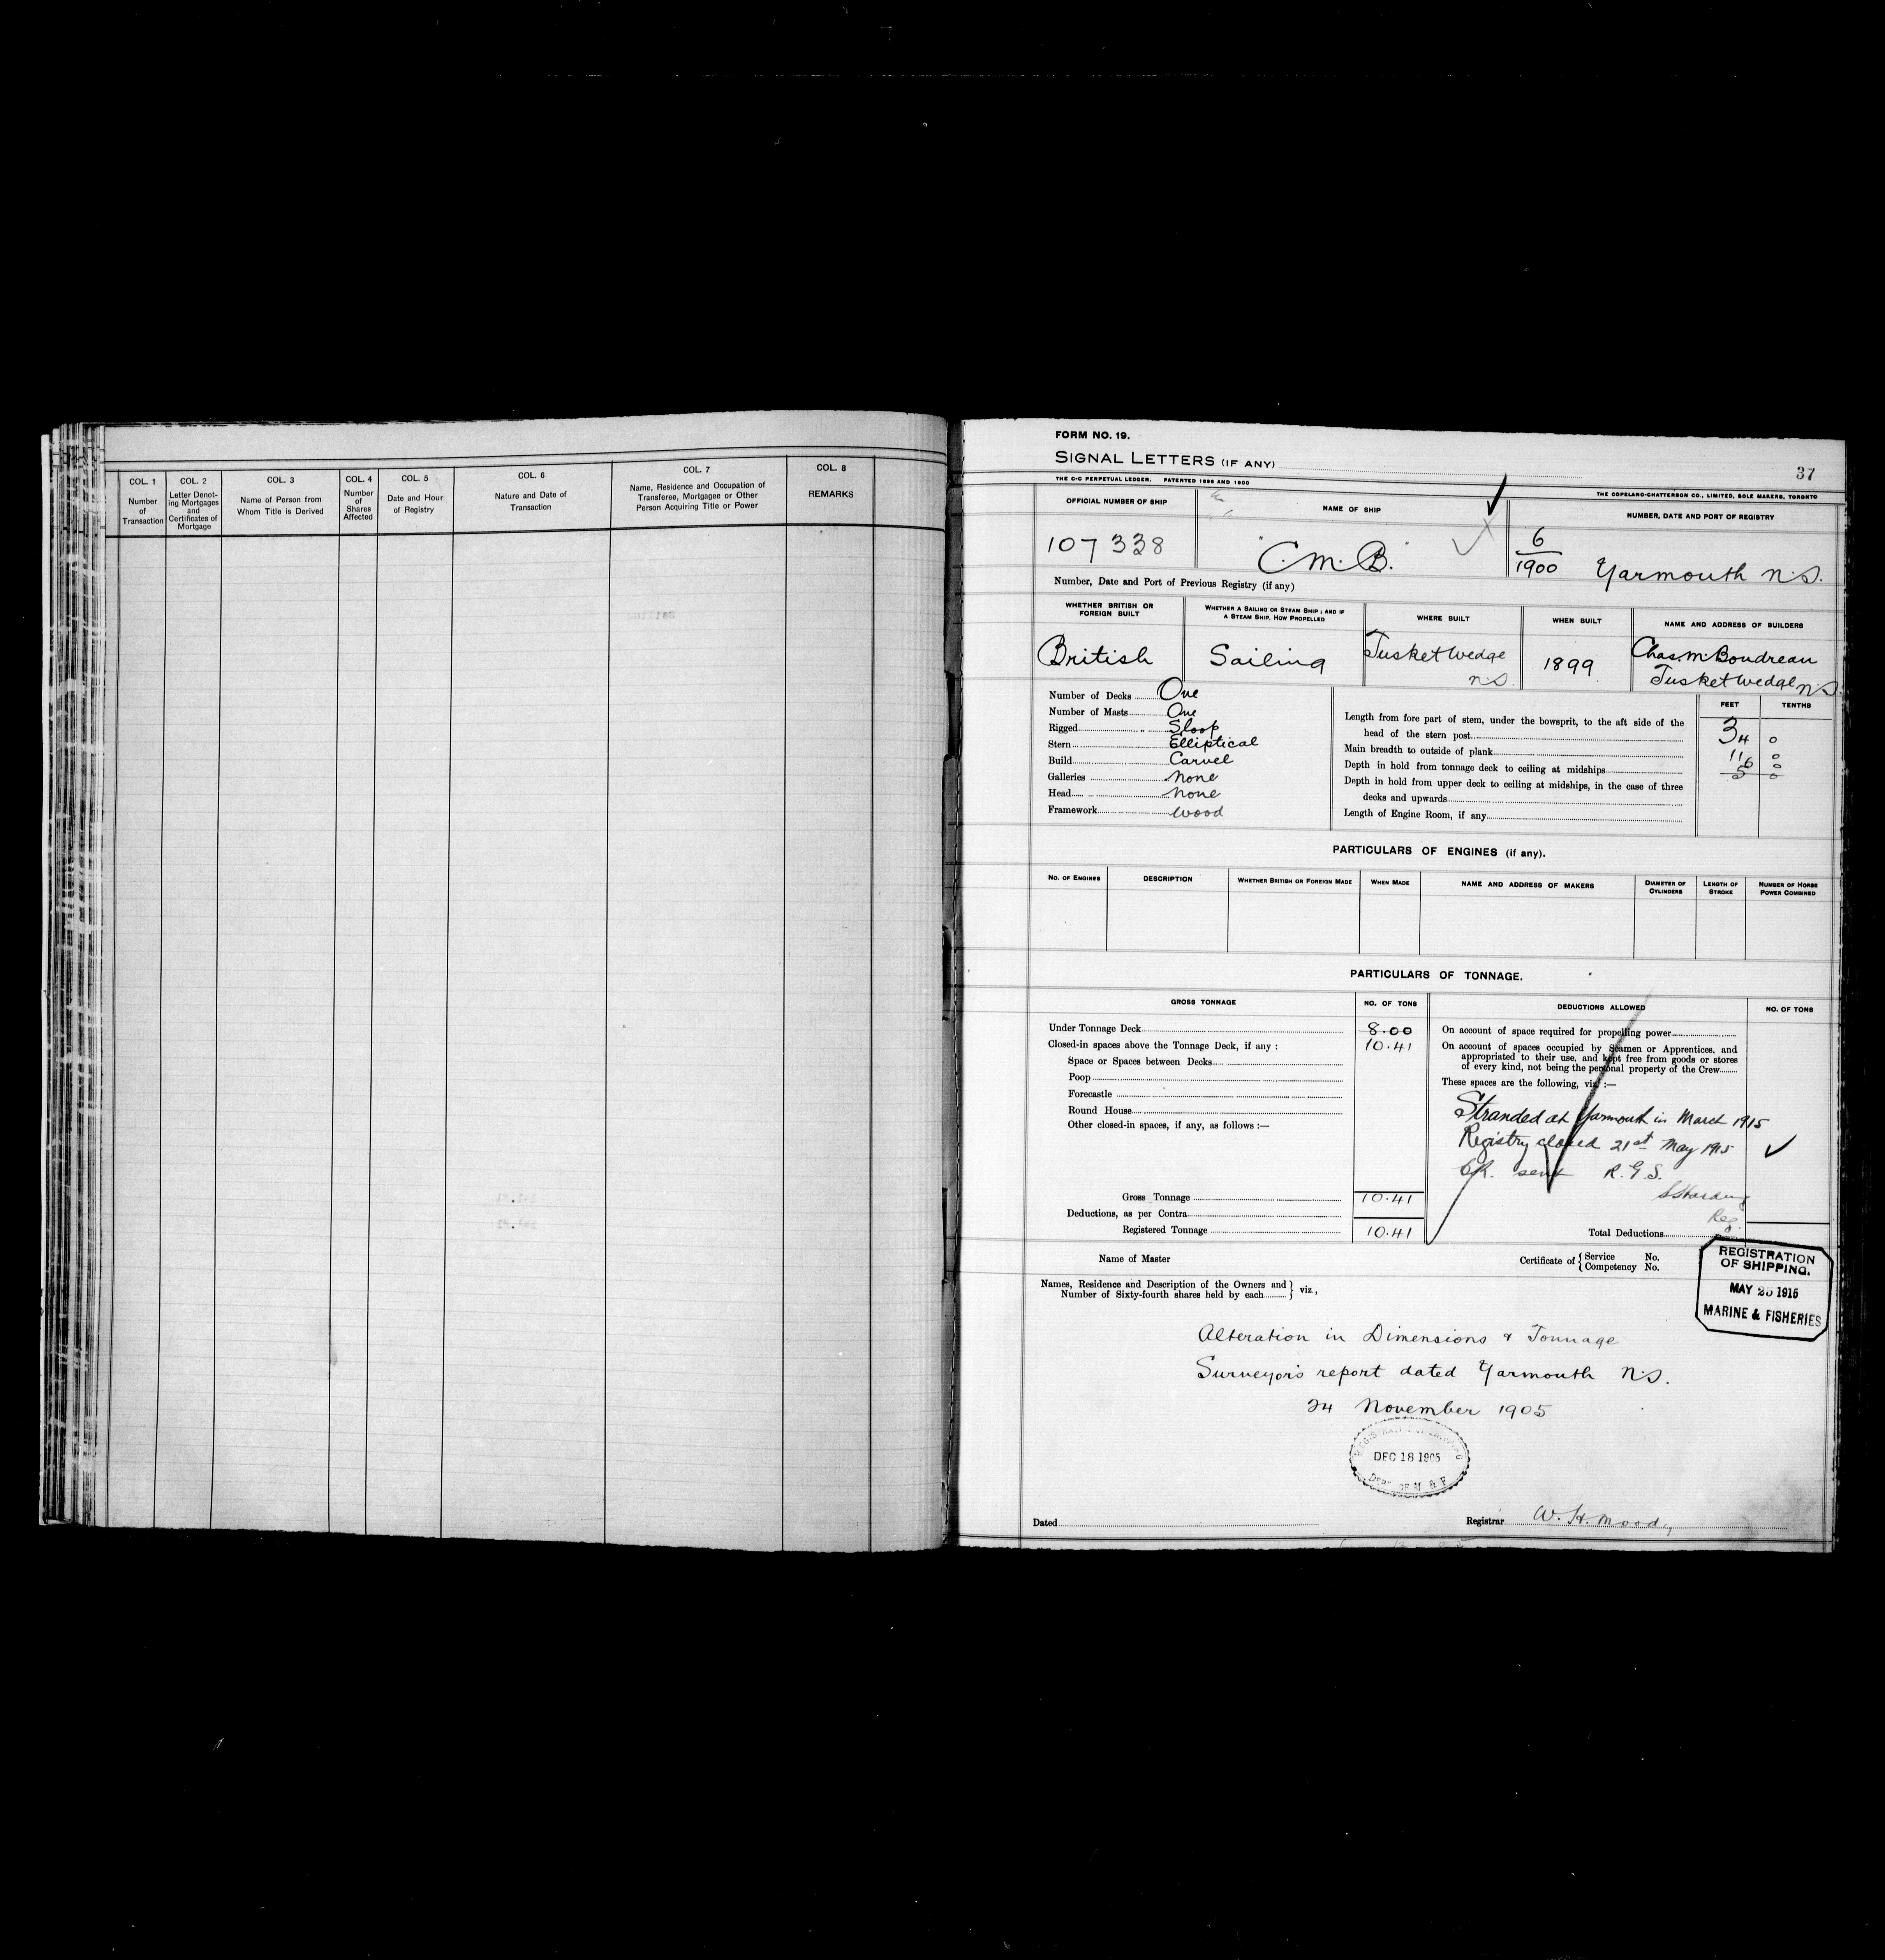 COL. 1
Number
of
Transaction
COL. 2
Letter Denot-
ing Mortgages
and
Certificates of
Mortgage
COL. 3
Name of Person from
Whom Title is Derived
COL. 4
Number
of
Shares
Affected
COL. 5
Date and Hour
of Registry
COL. 6
Nature and Date of
Transaction
COL. 7
Name, Residence and Occupation of
Transferee, Mortgagee or Other
Person Acquiring Title or Power
COL. 8
REMARKS
FORM NO. 19.
SIGNAL LETTERS (IF ANY)
37
THE C-C PERPETUAL LEDGER. PATENTED 1896 AND 1900
THE COPELAND-CHATTERSON CO., LIMITED, SOLE MAKERS, TORONTO
OFFICIAL NUMBER OF SHIP
NAME OF SHIP
NUMBER, DATE AND PORT OF REGISTRY
107338
"C.M.B."
6
1900 Yarmouth N.S.
Number, Date and Port of Previous Registry (if any)
WHETHER BRITISH OR
FOREIGN BUILT
WHETHER A SAILING OR STEAM SHIP; AND IF
A STEAM SHIP, HOW PROPELLED
WHERE BUILT
WHEN BUILT
NAME AND ADDRESS OF BUILDERS
British
Sailing
Tusket Wedge
N.S.
1899
Chas. M. Boudreau
Tusket Wedge N.S.
Number of Decks One
Number of Masts One
Rigged Sloop
Stern Elliptical
Build Carvel
Galleries None
Head None
Framework Wood
FEET TENTHS
Length from fore part of stem, under the bowsprit, to the aft side of the
head of the stern post 34 0
Main breadth to outside of plank 11 0
Depth in hold from tonnage deck to ceiling at midships 6 0
5 0
Depth in hold from upper deck to ceiling at midships, in the case of three
decks and upwards
Length of Engine Room, if any
PARTICULARS OF ENGINES (if any).
NO. OF ENGINES
DESCRIPTION
WHETHER BRITISH OR FOREIGN MADE
WHEN MADE
NAME AND ADDRESS OF MAKERS
DIAMETER OF
CYLINDERS
LENGTH OF
STROKE
NUMBER OF HORSE
POWER COMBINED
PARTICULARS OF TONNAGE.
GROSS TONNAGE
NO. OF TONS
DEDUCTIONS ALLOWED
NO. OF TONS
Under Tonnage Deck 8.00
Closed-in spaces above the Tonnage Deck, if any : 10.41
Space or Spaces between Decks
Poop
Forecastle
Round House
Other closed-in spaces, if any, as follows :—
Gross Tonnage 10.41
Deductions, as per Contra
Registered Tonnage 10.41
On account of space required for propelling power
On account of spaces occupied by Seamen or Apprentices, and
appropriated to their use, and kept free from goods or stores
of every kind, not being the personal property of the Crew
These spaces are the following, viz. :—
Stranded at Yarmouth in March 1915
Registry closed 21st May 1915
sent R.G.S.
Reg.
Total Deductions
Name of Master
Certificate of { Service No.
Competency No.
REGISTRATION
OF SHIPPING.
MAY 1915
MARINE & FISHERIES
Names, Residence and Description of the Owners and
Number of Sixty-fourth shares held by each } viz.,
Alteration in Dimensions & Tonnage
Surveyor's report dated Yarmouth N.S.
24 November 1905
DEC 18 1905
OF M & F
Dated
Registrar W. H. Moody